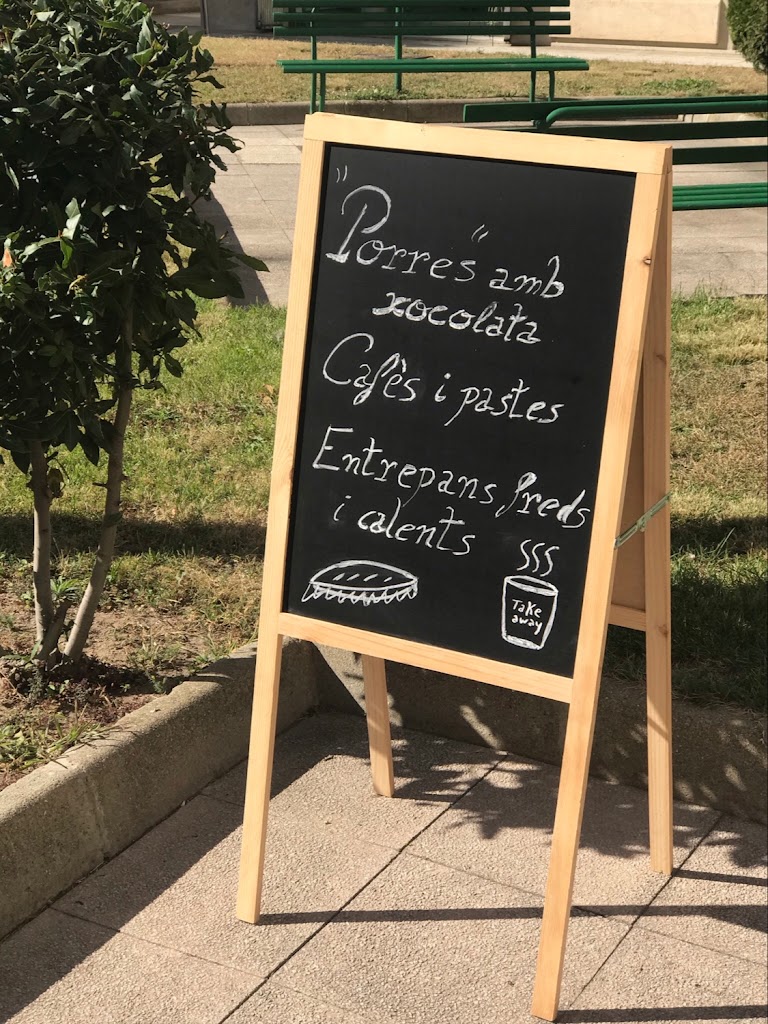 "Porres" amb
xocolata
Cafès i pastes
Entrepans freds
i calents
Take
away